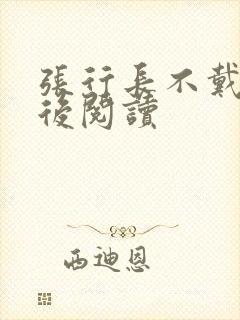 張行長不戴
後閱讀
西迪恩